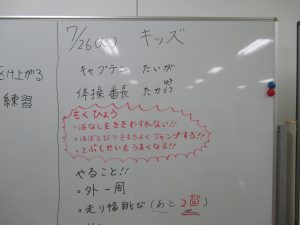 け上がる
練習
7/26(火) キッズ
キャプテン たいが
体操番長 たかゆき
もくひょう
・はなしをききわすれない!!
・はばとびできもちよくジャンプする!!
・とぶしせいをうまくなる!!
やること!!
・外一周
・走り幅跳び(あと2回)